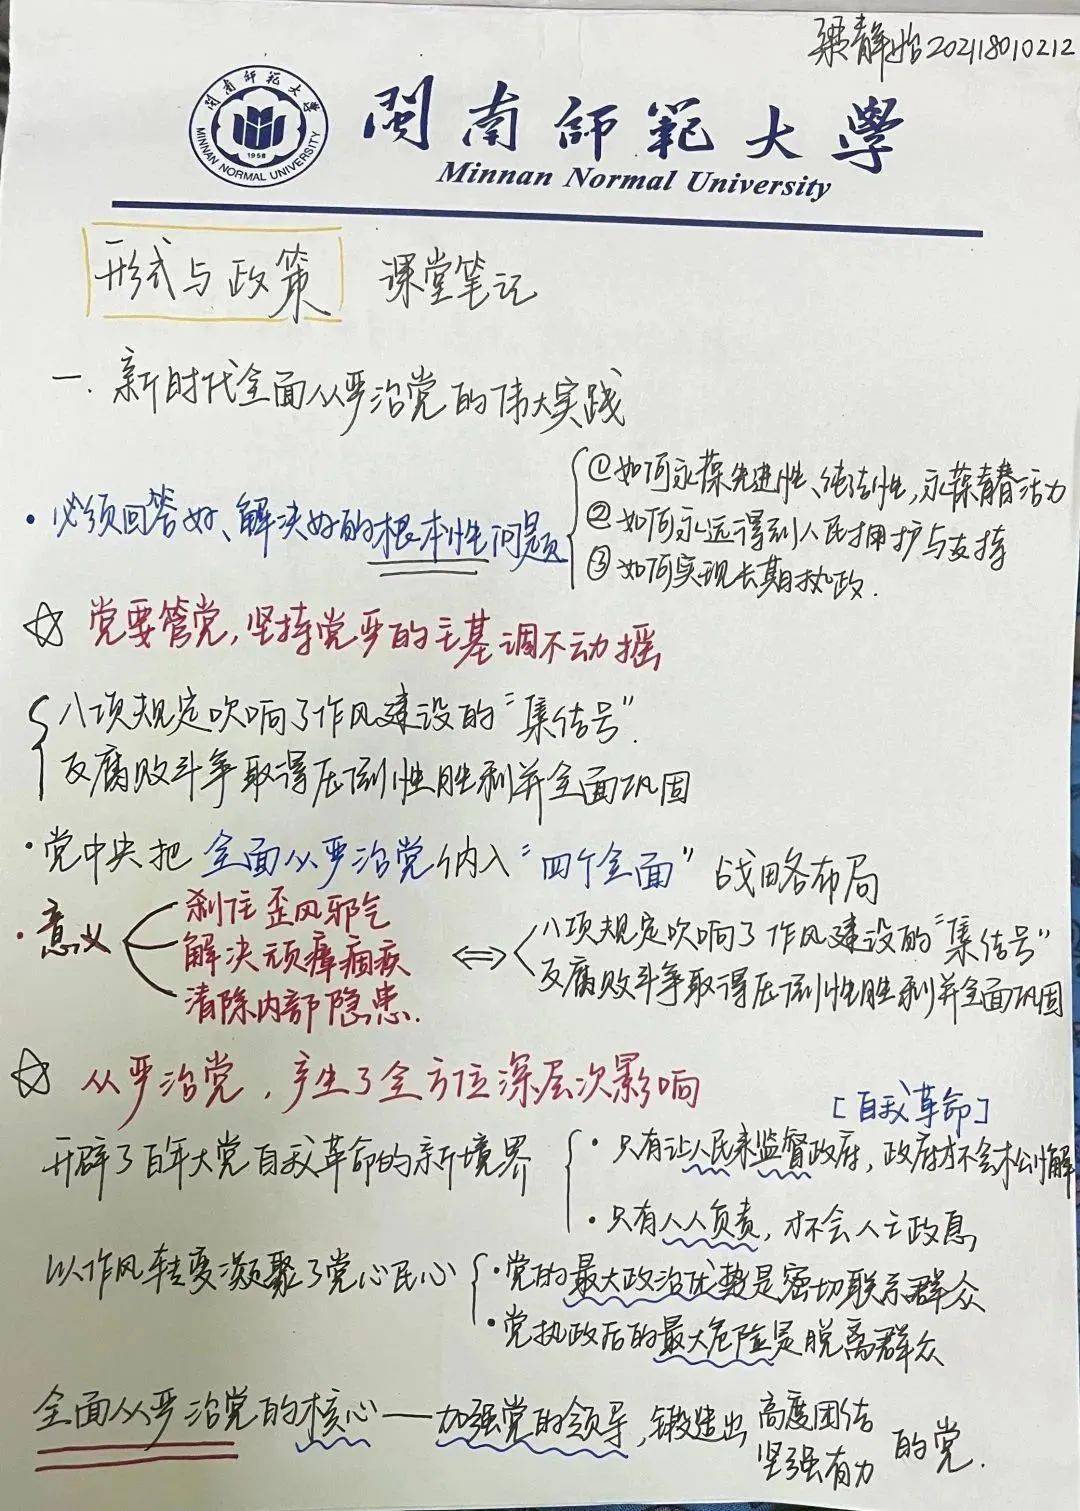 梁静怡202118010212
閩南師範大學
MINNAN NORMAL UNIVERSITY
1958
Minnan Normal University
形式与政策 课堂笔记
一. 新时代全面从严治党的伟大实践
·必须回答好、解决好的根本性问题
①如何永葆先进性、纯洁性,永葆青春活力
②如何永远得到人民拥护与支持
③如何实现长期执政.
☆ 党要管党,坚持党严的主基调不动摇
八项规定吹响了作风建设的“集结号”.
反腐败斗争取得压倒性胜利并全面巩固
·党中央把全面从严治党纳入“四个全面”战略布局
·意义
刹住歪风邪气
解决顽瘴痼疾
清除内部隐患.
⇔
八项规定吹响了作风建设的“集结号”
反腐败斗争取得压倒性胜利并全面巩固
☆ 从严治党,产生了全方位深层次影响
[自我革命]
开辟了百年大党自我革命的新境界
·只有让人民来监督政府,政府才不会松懈
·只有人人负责,才不会人亡政息
以作风转变凝聚了党心民心
·党的最大政治优势是密切联系群众
·党执政后的最大危险是脱离群众
全面从严治党的核心——加强党的领导,锻造出高度团结
坚强有力的党.